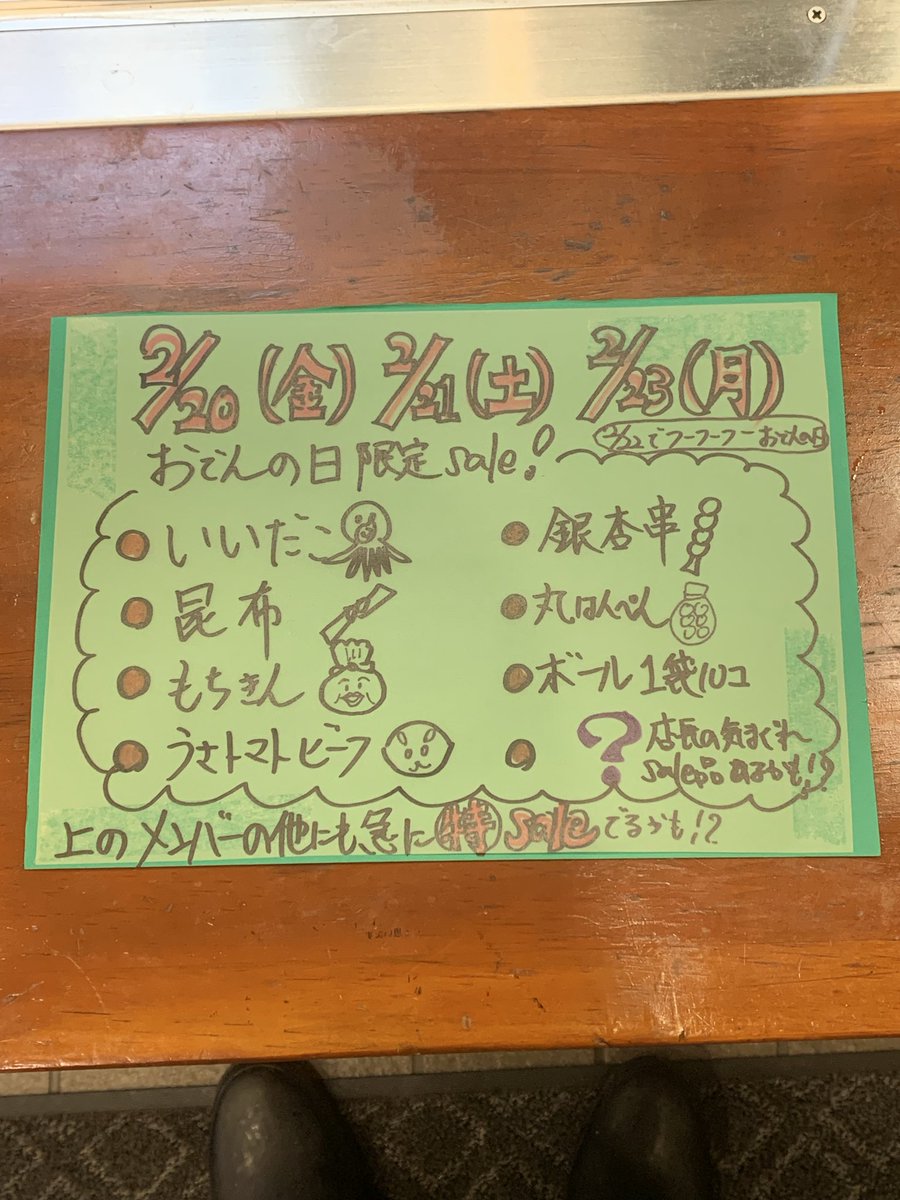 2/20(金) 2/21(土) 2/23(月)
2/22でフーフーフーおでんの日
おでんの日限定sale!
いいだこ
昆布
もちきん
うさトマトビーフ
銀杏串
丸はんぺん
ボール1袋10コ
? 店長の気まぐれ
sale品あるかも!?
上のメンバーの他にも、急に特saleでるかも!?